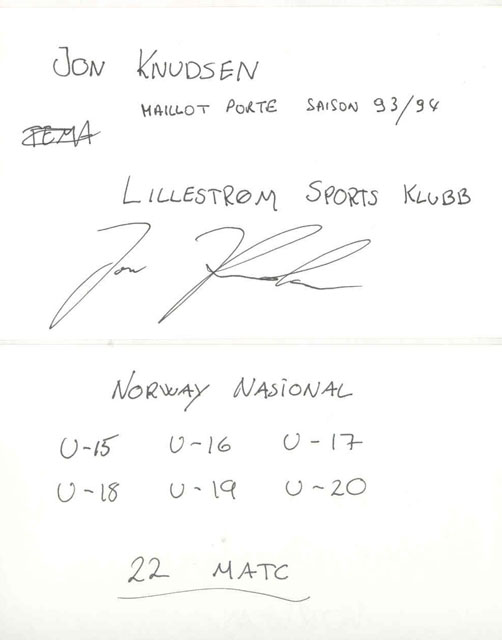 JON KNUDSEN
MAILLOT PORTE SAISON 93/94
LILLESTRØM SPORTS KLUBB
Jon
NORWAY NASIONAL
U-15 U-16 U-17
U-18 U-19 U-20
22 MATC